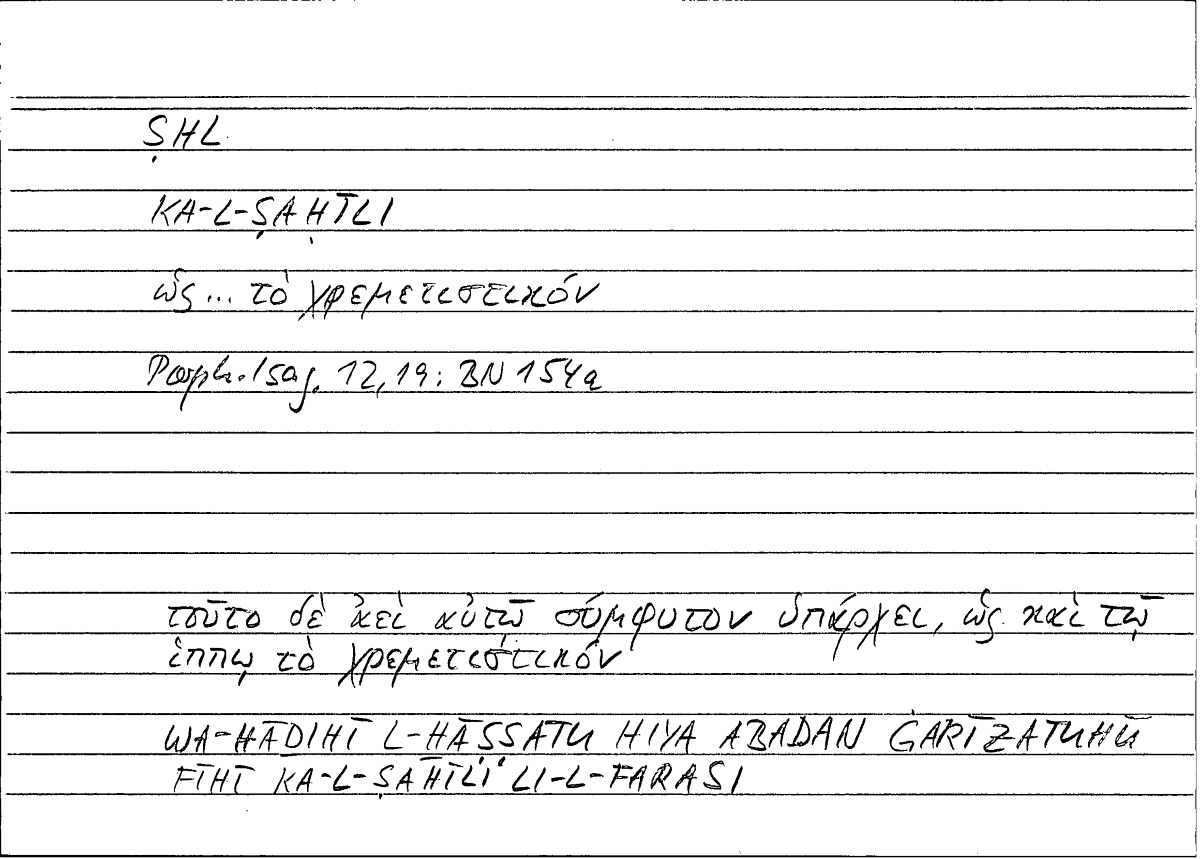 ṢHL
KA-L-ṢAḤĪLI
ὡς... τὸ χρεμετιστικόν
Porph. Isag. 12,19: BN 154a
τοῦτο δὲ ἀεὶ αὐτῷ σύμφυτον ὑπάρχει, ὡς καὶ τῷ
ἵππῳ τὸ χρεμετιστικόν
WA-HĀDIHĪ L-HĀṢṢATU HIYA ABADAN ĠARĪZATUHŪ
FĪHĪ KA-L-ṢAHĪLI LI-L-FARASI